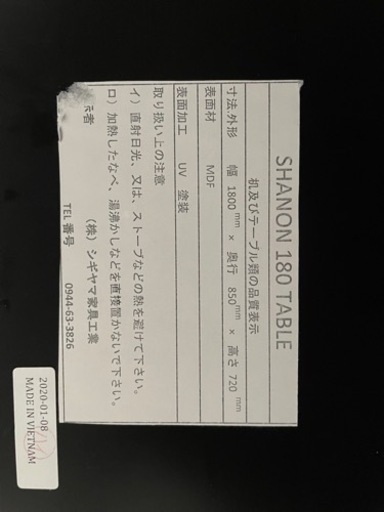 SHANON 180 TABLE
机及びテーブル類の品質表示
寸法外形 幅 1800mm × 奥行 850mm × 高さ 720mm
表面材 MDF
表面加工 UV 塗装
取り扱い上の注意
イ）直射日光、又は、ストーブなどの熱を避けて下さい。
ロ）加熱したなべ、湯沸かしなどを直接置かないで下さい。
示者 （株）シギヤマ家具工業
TEL 番号 0944-63-3826
2020-01-08
MADE IN VIETNAM